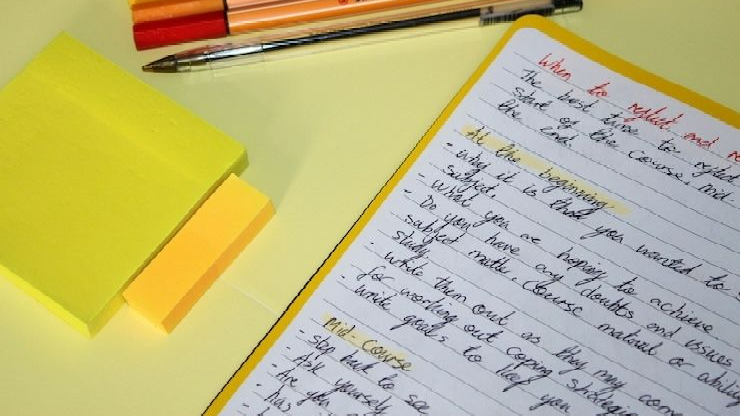 When to reflect and re
The best time to reflect
start of the course, mid
the end.
At the beginning
- why it is that you wanted to s
subject.
- What you are hoping to achieve
- Do you have any doubts and issues
subject matter, course material or ability
study
- write them out as they may come
for working out coping strateg
- write goals to help you
Mid-Course
- step back to see
- Ask yourself
- Are you
- has